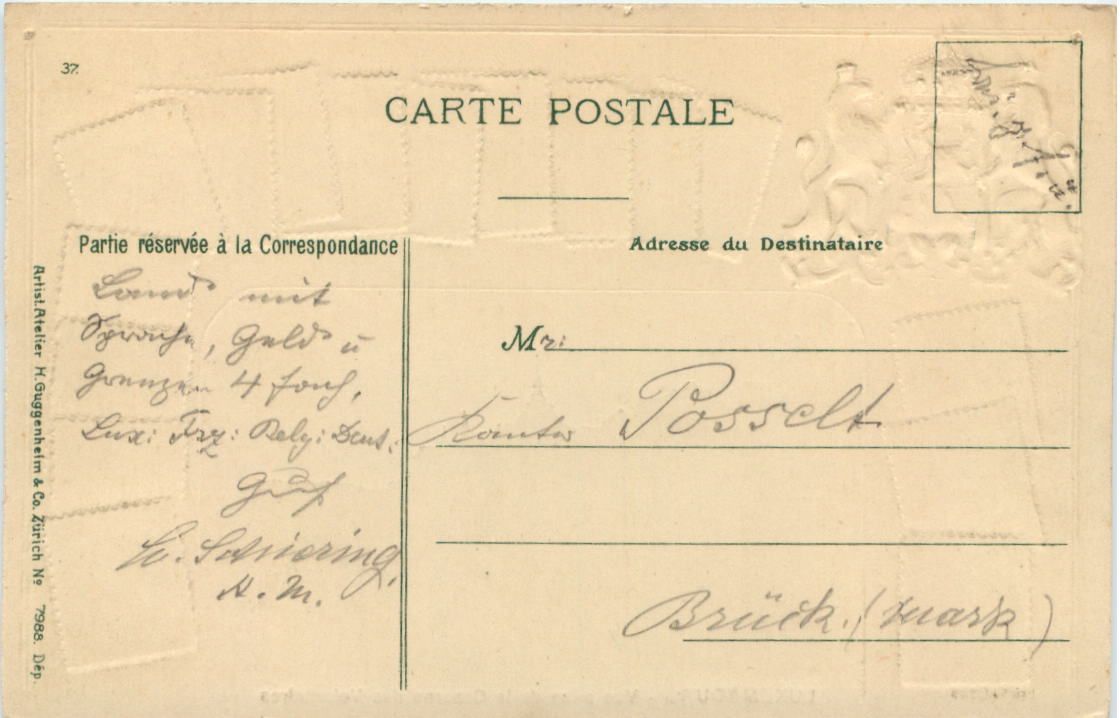 37.
CARTE POSTALE
Partie réservée à la Correspondance
Adresse du Destinataire
Land mit
Sprache, Geld u
Grenzen 4 fach,
Lux: Frz: Belg: Deut.:
Gruß
Schiering
Mr:
Kantor Posselt
Brück. (Mark)
Artist. Atelier H. Guggenheim & Co. Zürich Nº 7988. Dép.